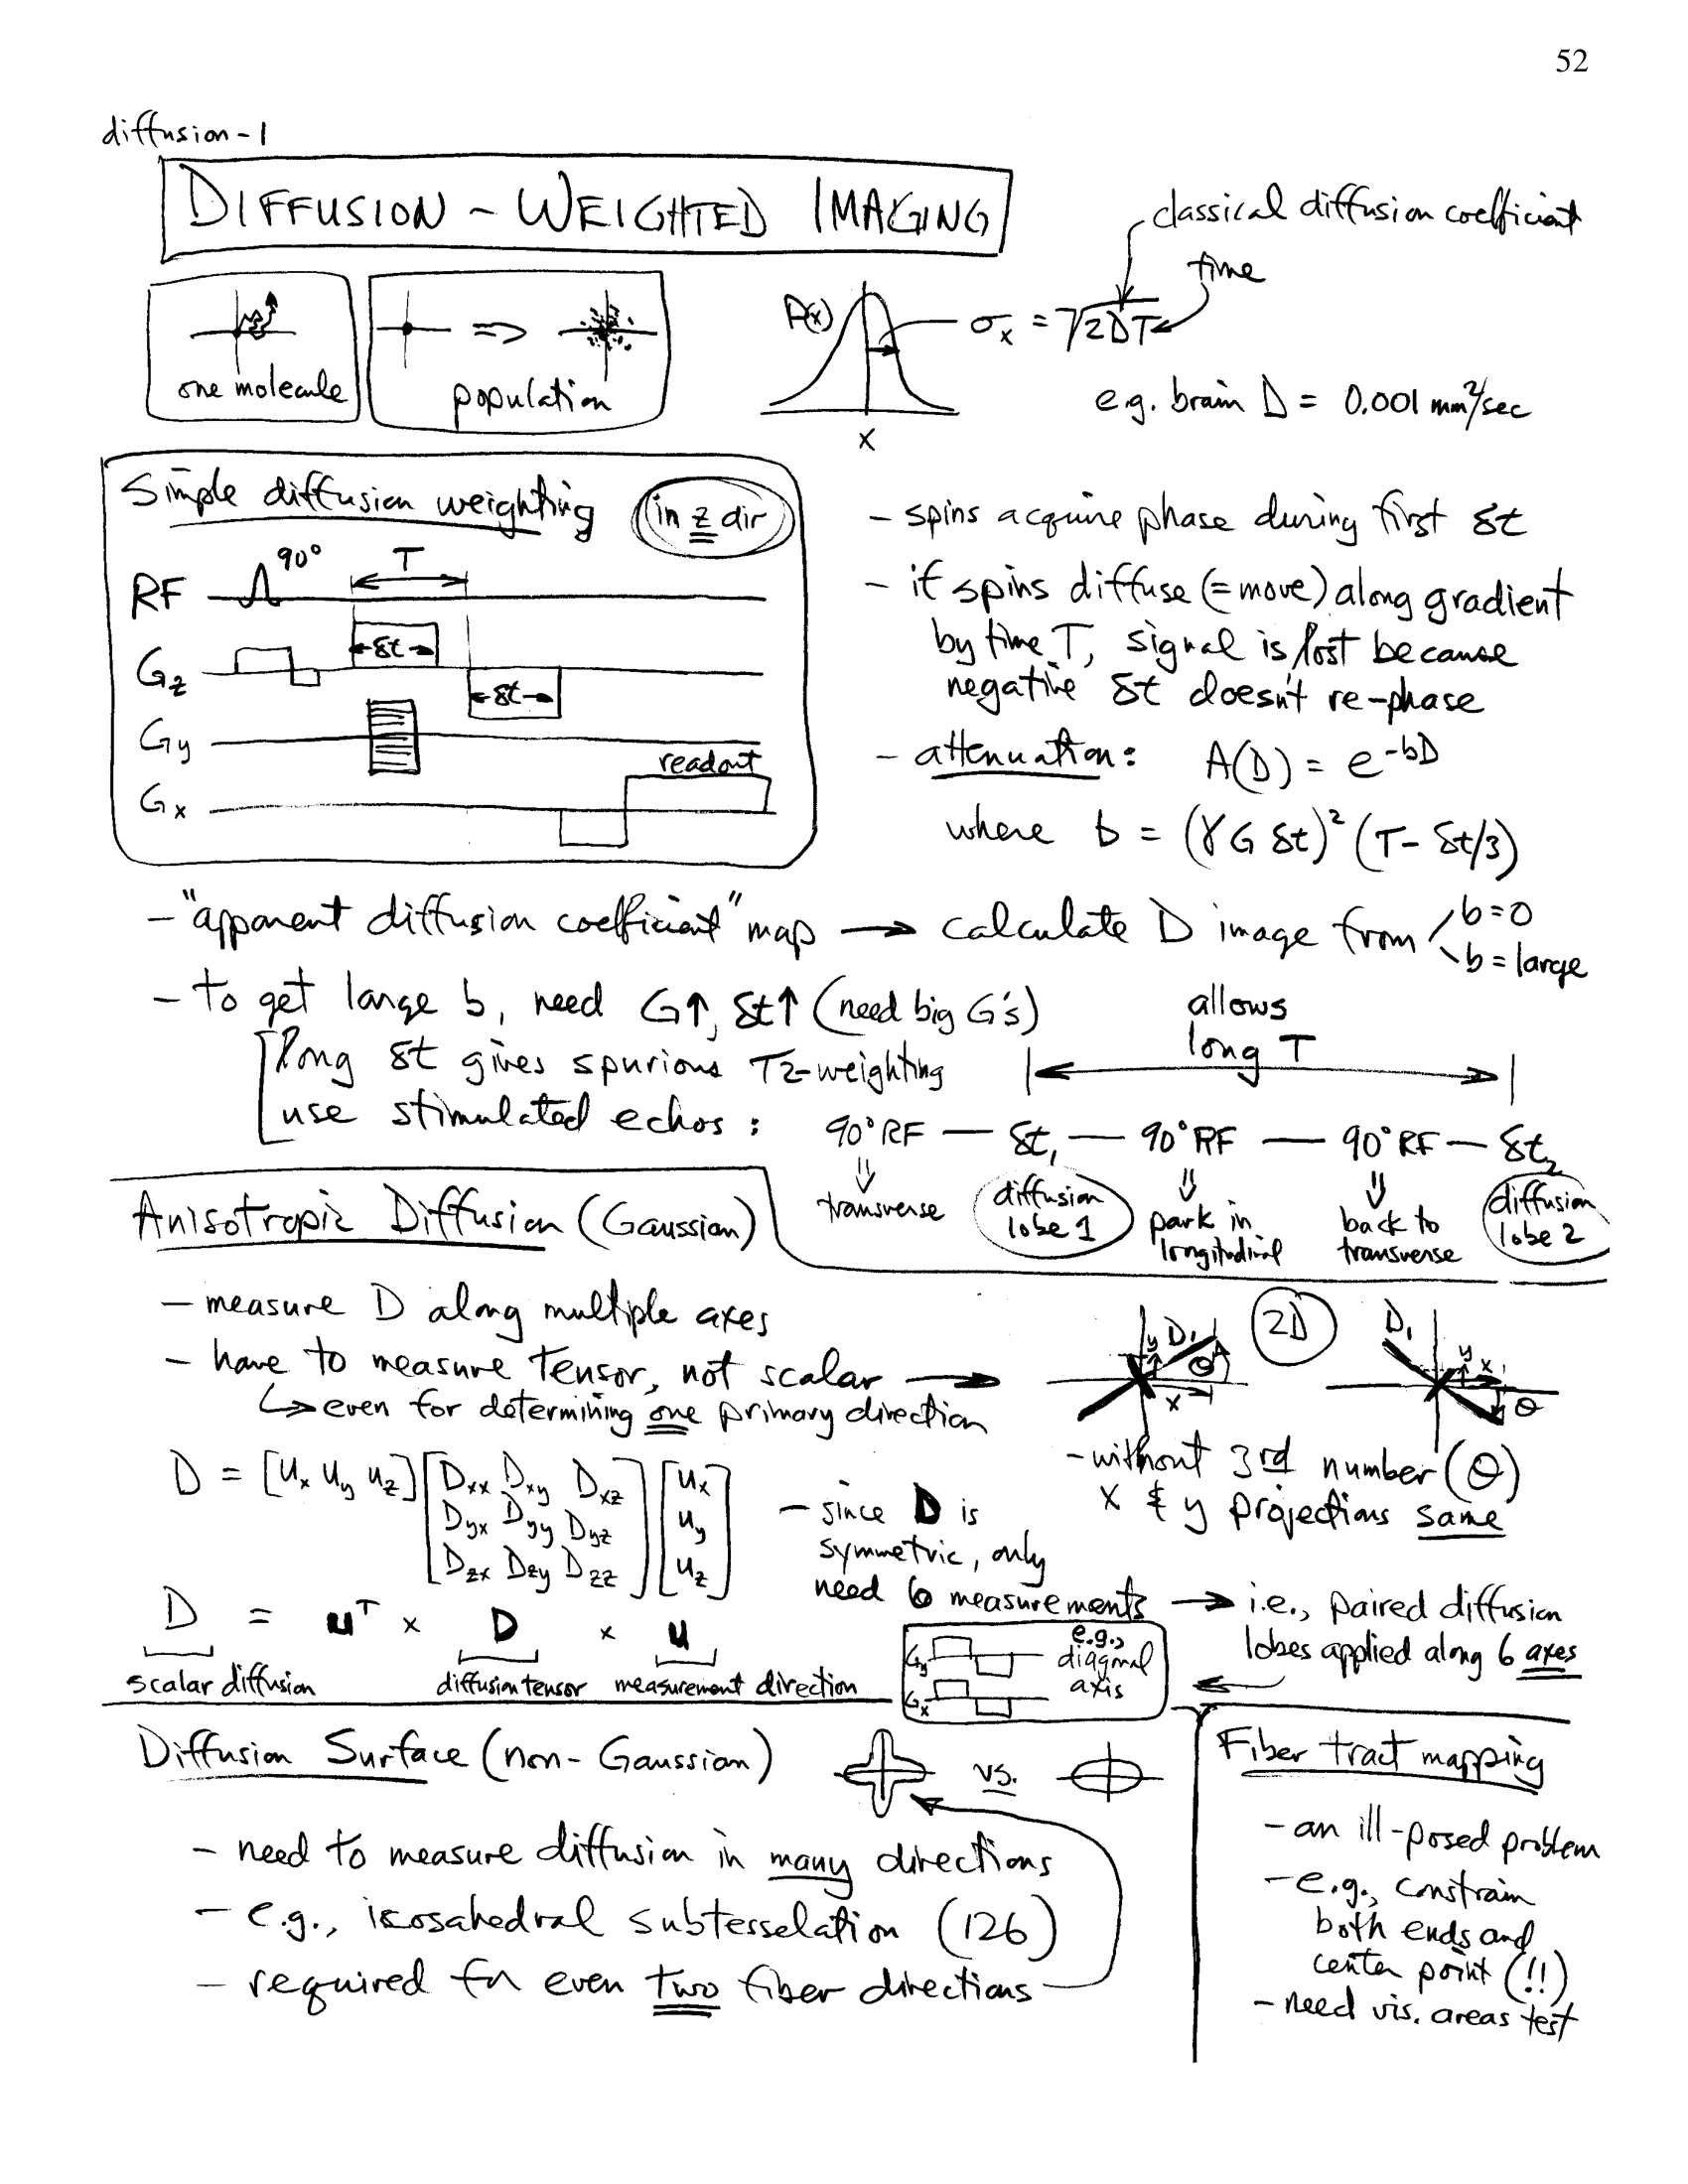 52
diffusion-1
DIFFUSION - WEIGHTED IMAGING
classical diffusion coefficient
time
one molecule
population
P(x)
x
σx = √2DT
e.g. brain D = 0.001 mm²/sec
Simple diffusion weighting
in z dir
RF
90°
T
Gz
←δt→
←δt→
Gy
Gx
readout
- spins acquire phase during first δt
- if spins diffuse (=move) along gradient
by time T, signal is lost because
negative δt doesn't re-phase
- attenuation: A(D) = e^-bD
where b = (γ G δt)² (T- δt/3)
- "apparent diffusion coefficient" map → calculate D image from
b=0
b=large
- to get large b, need G↑, δt↑ (need big G's)
long δt gives spurious T2-weighting
use stimulated echos:
allows
long T
90°RF — δt₁ — 90°RF — 90°RF — δt₂
⇓ transverse
diffusion
lobe 1
⇓ park in
longitudinal
⇓ back to
transverse
diffusion
lobe 2
Anisotropic Diffusion (Gaussian)
- measure D along multiple axes
- have to measure tensor, not scalar →
↳ even for determining one primary direction
2D
y D₁ θ
x
D₁ y x
θ
- without 3rd number (θ)
x & y projections same
D = [ux uy uz] [Dxx Dxy Dxz] [ux]
[Dyx Dyy Dyz] [uy]
[Dzx Dzy Dzz] [uz]
- since D is
symmetric, only
need 6 measurements → i.e., paired diffusion
lobes applied along 6 axes
D = uᵀ × D × u
scalar diffusion
diffusion tensor
measurement direction
Gy
Gx
e.g.,
diagonal
axis
Diffusion Surface (non-Gaussian)
vs.
- need to measure diffusion in many directions
- e.g., icosahedral subtesselation (126)
- required for even two fiber directions
Fiber tract mapping
- an ill-posed problem
- e.g., constrain
both ends and
center point (!!)
- need vis. areas test